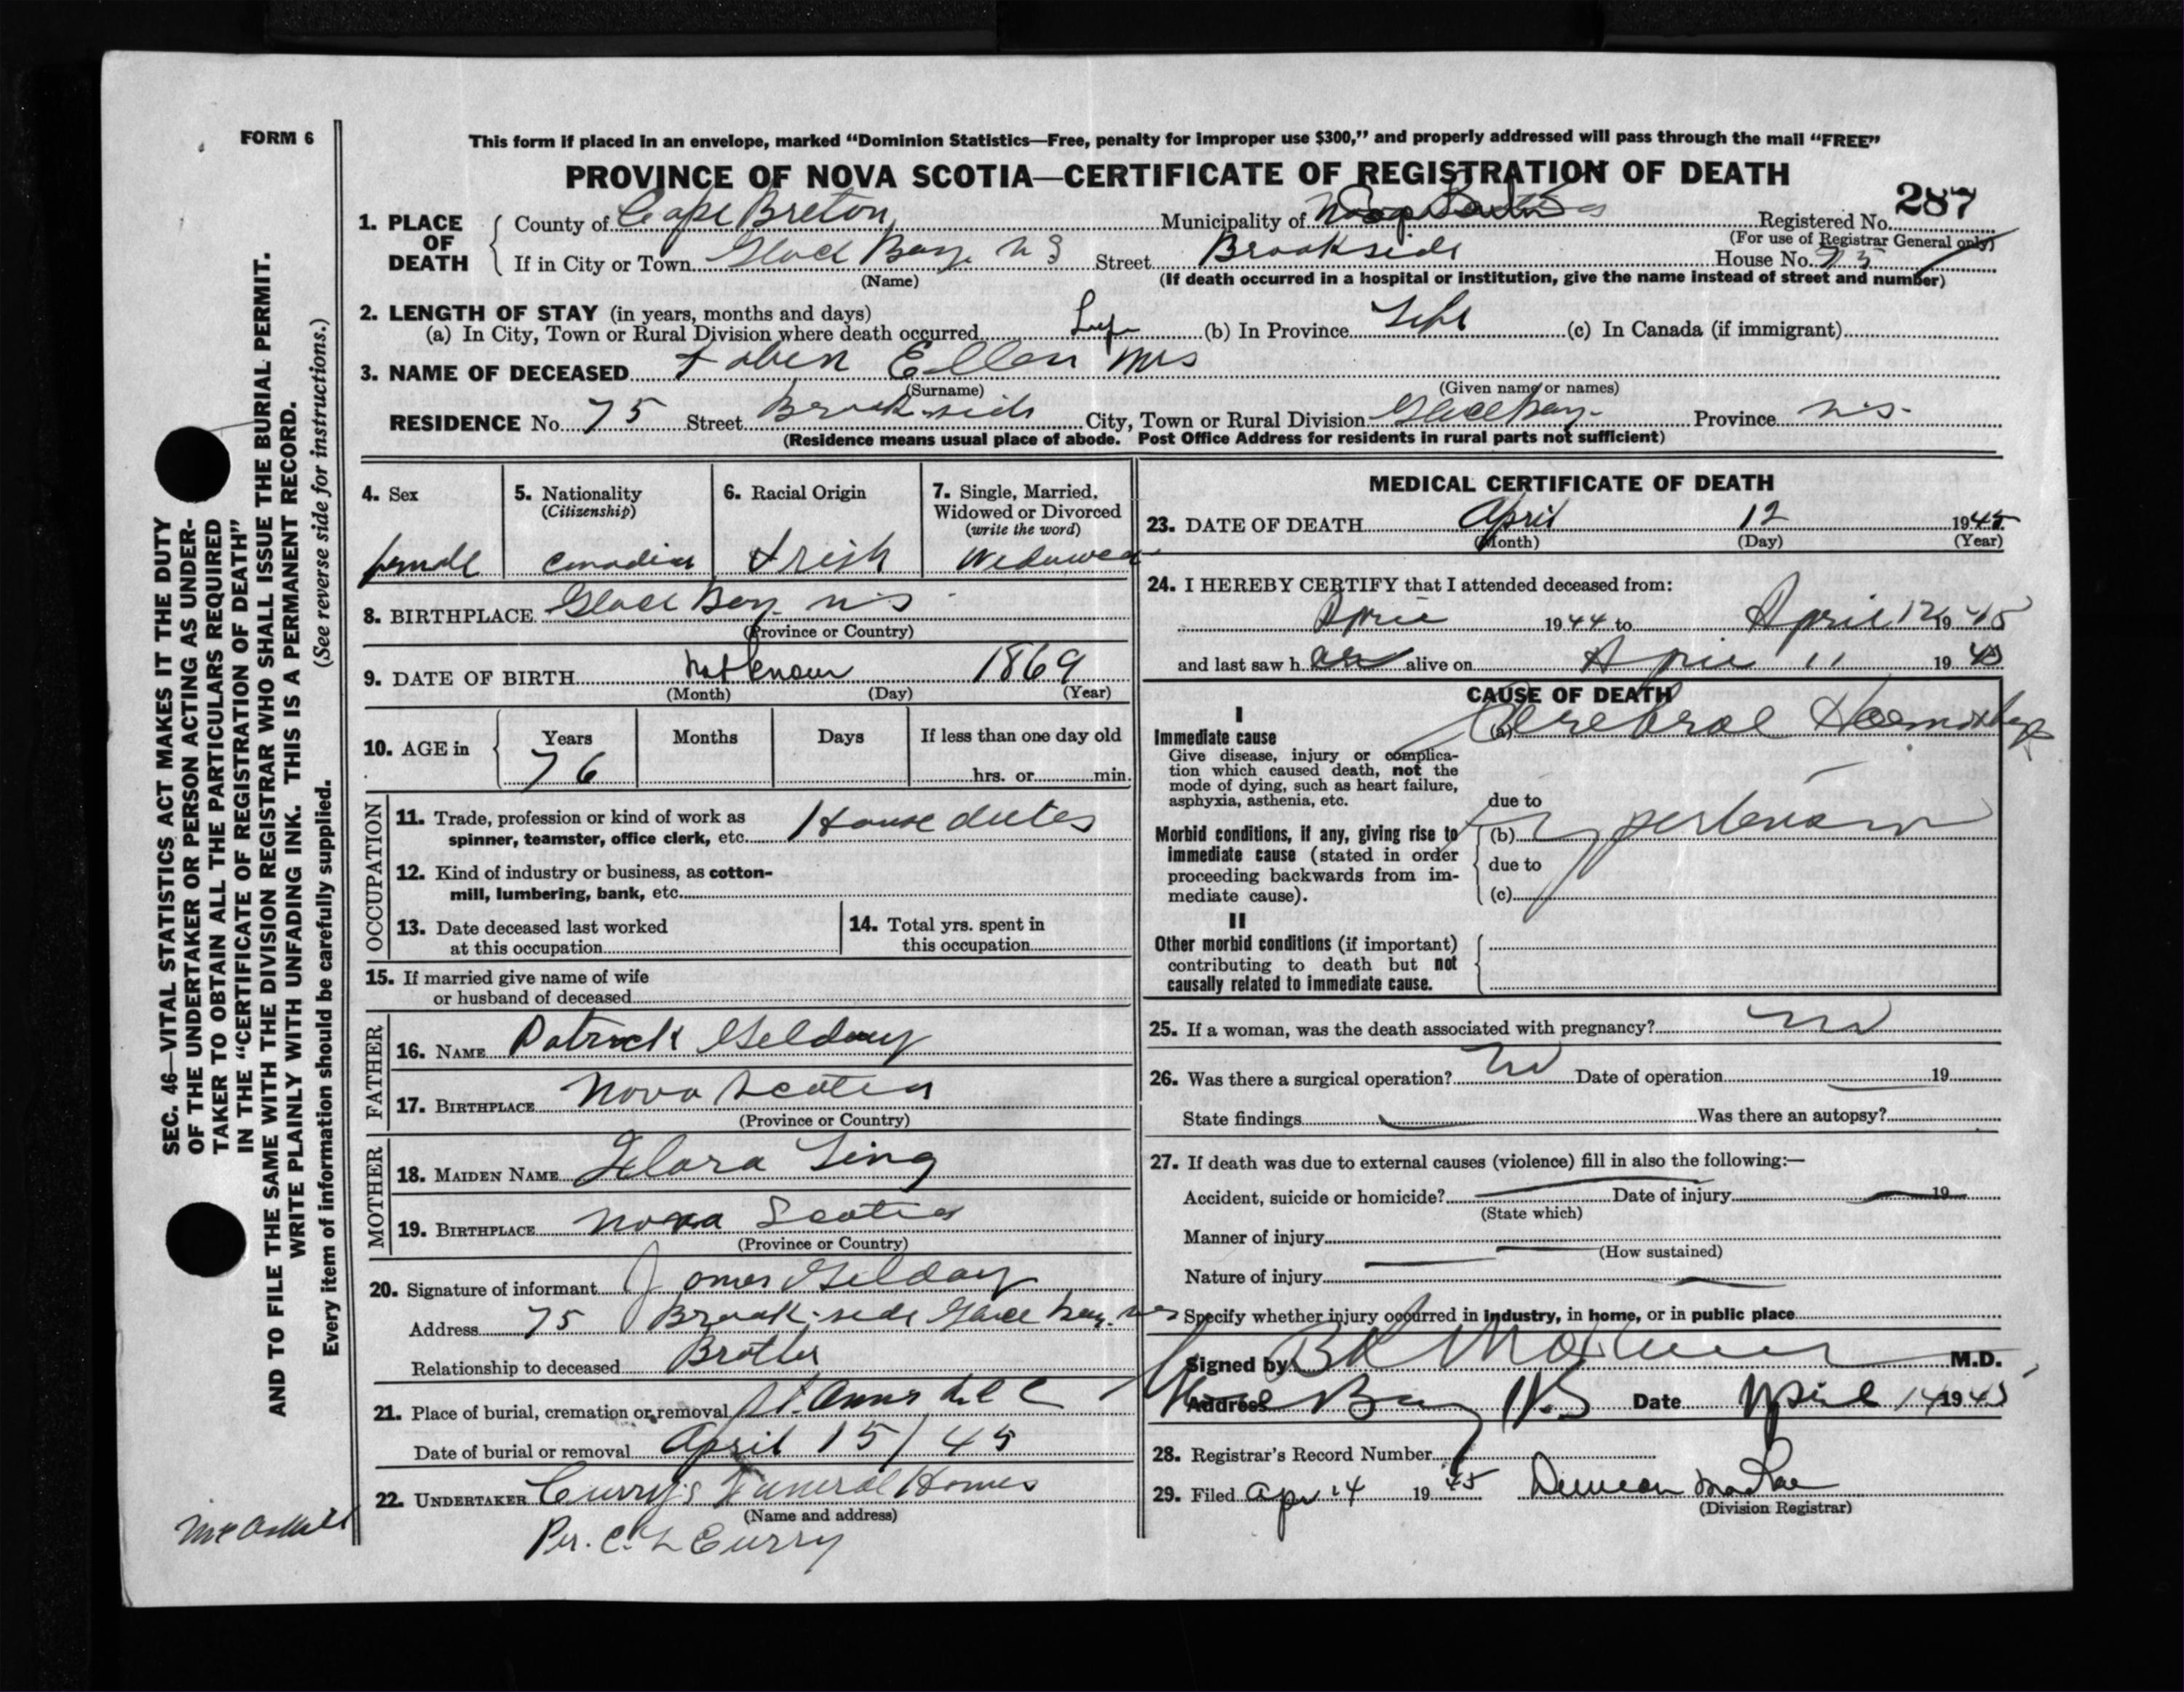 FORM 6
This form if placed in an envelope, marked “Dominion Statistics—Free, penalty for improper use $300,” and properly addressed will pass through the mail “FREE”
PROVINCE OF NOVA SCOTIA—CERTIFICATE OF REGISTRATION OF DEATH
287
1. PLACE OF DEATH
County of Cape Breton Municipality of Registered No.
(For use of Registrar General only)
If in City or Town Glace Bay N S Street Brookside House No. 75
(Name) (If death occurred in a hospital or institution, give the name instead of street and number)
2. LENGTH OF STAY (in years, months and days)
(a) In City, Town or Rural Division where death occurred Life (b) In Province Life (c) In Canada (if immigrant)
3. NAME OF DECEASED Tobin Ellen Mrs
(Surname) (Given name or names)
RESIDENCE No. 75 Street Brookside City, Town or Rural Division Glace Bay Province N.S.
(Residence means usual place of abode. Post Office Address for residents in rural parts not sufficient)
4. Sex
female
5. Nationality
(Citizenship)
Canadian
6. Racial Origin
Irish
7. Single, Married,
Widowed or Divorced
(write the word)
Widowed
8. BIRTHPLACE Glace Bay N S
(Province or Country)
9. DATE OF BIRTH Not known 1869
(Month) (Day) (Year)
10. AGE in
Years Months Days If less than one day old
76 hrs. or min.
OCCUPATION
11. Trade, profession or kind of work as
spinner, teamster, office clerk, etc. House duties
12. Kind of industry or business, as cotton-
mill, lumbering, bank, etc.
13. Date deceased last worked
at this occupation
14. Total yrs. spent in
this occupation
15. If married give name of wife
or husband of deceased
FATHER
16. NAME Patrick Gilday
17. BIRTHPLACE Nova Scotia
(Province or Country)
MOTHER
18. MAIDEN NAME
19. BIRTHPLACE Nova Scotia
(Province or Country)
20. Signature of informant James Gilday
Address 75 Brook-side Glace Bay. N S
Relationship to deceased Brother
21. Place of burial, cremation or removal St. Anns
Date of burial or removal April 15/45
22. UNDERTAKER Curry's Funeral Homes
(Name and address)
Per. C. L Curry
MEDICAL CERTIFICATE OF DEATH
23. DATE OF DEATH April 12 1945
(Month) (Day) (Year)
24. I HEREBY CERTIFY that I attended deceased from:
April 1944 to April 12 1945
and last saw h er alive on April 11 1945
CAUSE OF DEATH
I
Immediate cause
Give disease, injury or complica-
tion which caused death, not the
mode of dying, such as heart failure,
asphyxia, asthenia, etc.
(a) Cerebral Haemorrhage
due to
Morbid conditions, if any, giving rise to
immediate cause (stated in order
proceeding backwards from im-
mediate cause).
(b) Hypertension
due to
(c)
II
Other morbid conditions (if important)
contributing to death but not
causally related to immediate cause.
25. If a woman, was the death associated with pregnancy? no
26. Was there a surgical operation? no Date of operation 19
State findings Was there an autopsy?
27. If death was due to external causes (violence) fill in also the following:—
Accident, suicide or homicide? Date of injury 19
(State which)
Manner of injury
(How sustained)
Nature of injury
Specify whether injury occurred in industry, in home, or in public place
Signed by M.D.
Address Glace Bay N.S Date April 14 1945
28. Registrar's Record Number
29. Filed Apr 14 1945 Duncan MacRae
(Division Registrar)
SEC. 46—VITAL STATISTICS ACT MAKES IT THE DUTY
OF THE UNDERTAKER OR PERSON ACTING AS UNDER-
TAKER TO OBTAIN ALL THE PARTICULARS REQUIRED
IN THE “CERTIFICATE OF REGISTRATION OF DEATH”
AND TO FILE THE SAME WITH THE DIVISION REGISTRAR WHO SHALL ISSUE THE BURIAL PERMIT.
WRITE PLAINLY WITH UNFADING INK. THIS IS A PERMANENT RECORD.
Every item of information should be carefully supplied. (See reverse side for instructions.)